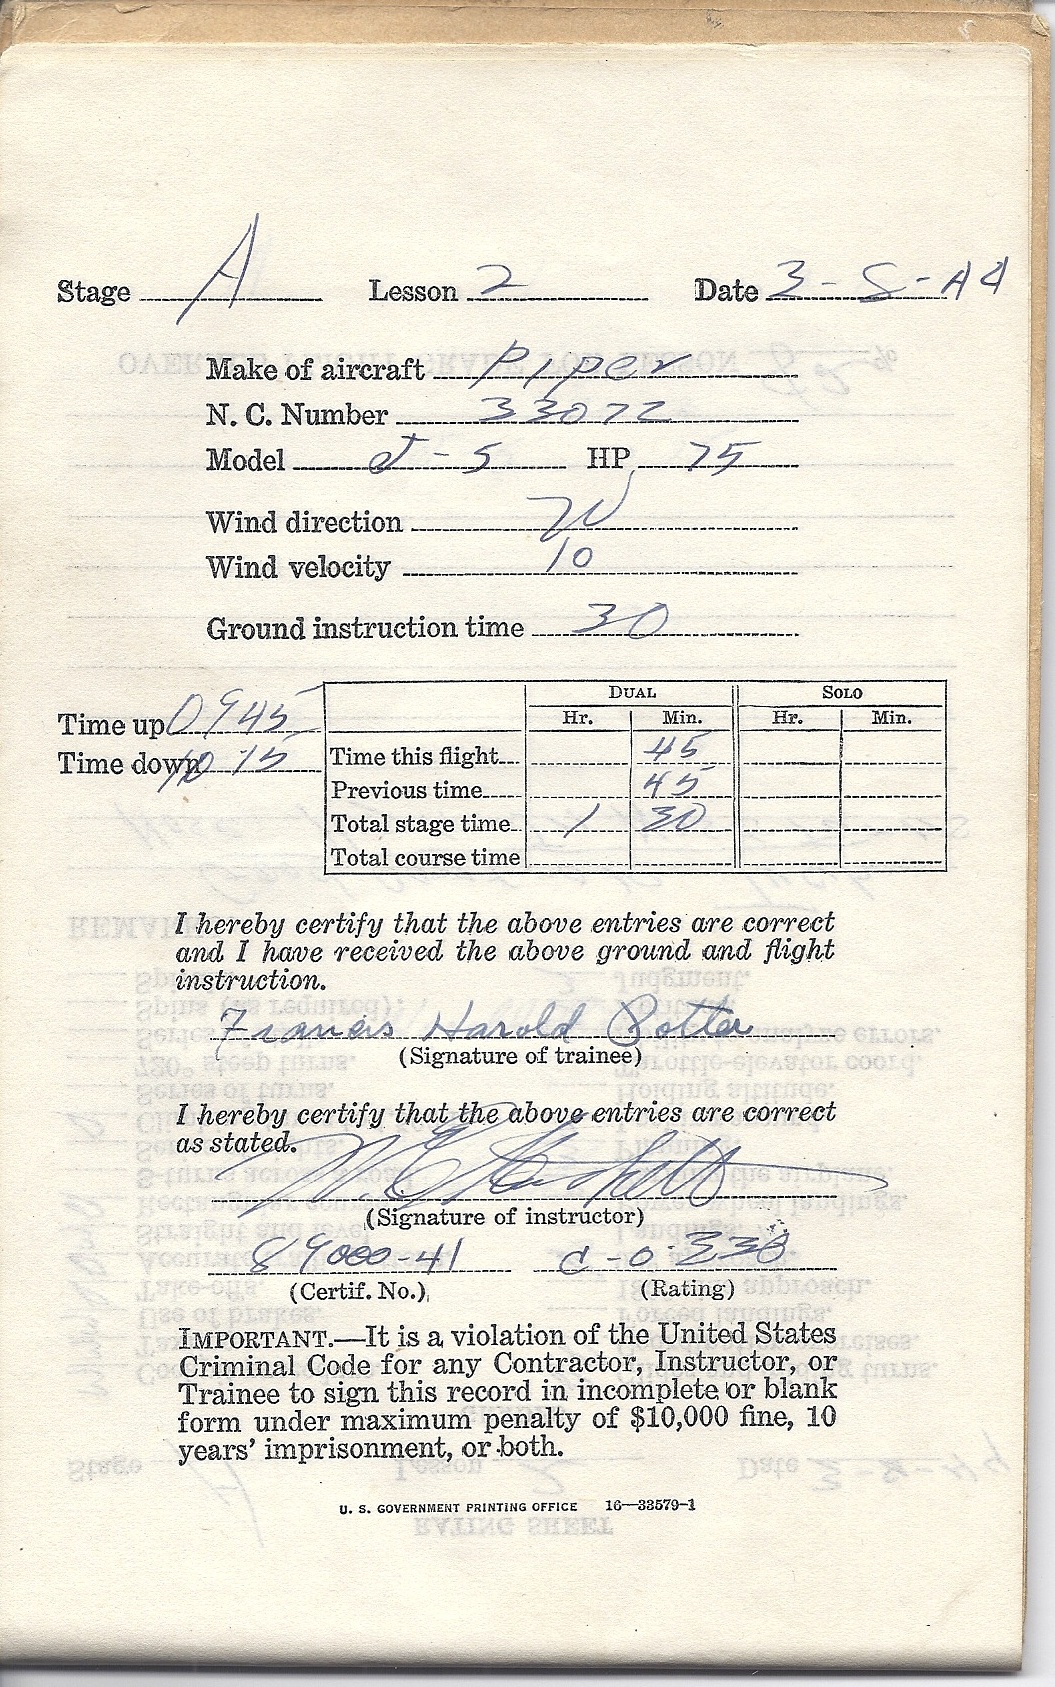 Stage A Lesson 2 Date 3-8-44
Make of aircraft Piper
N. C. Number 33072
Model J-5 HP 75
Wind direction W
Wind velocity 10
Ground instruction time 30
DUAL SOLO
Time up 0945 Hr. Min. Hr. Min.
Time down 10 15 Time this flight 45
Previous time 45
Total stage time 1 30
Total course time
I hereby certify that the above entries are correct
and I have received the above ground and flight
instruction.
Francis Harold Potter
(Signature of trainee)
I hereby certify that the above entries are correct
as stated.
(Signature of instructor)
89000-41 C-O-338
(Certif. No.) (Rating)
IMPORTANT.—It is a violation of the United States
Criminal Code for any Contractor, Instructor, or
Trainee to sign this record in incomplete or blank
form under maximum penalty of $10,000 fine, 10
years' imprisonment, or both.
U. S. GOVERNMENT PRINTING OFFICE 16—33579-1